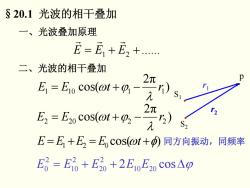 §20.1 光波的相干叠加
一、光波叠加原理
E⃗ = E⃗₁ + E⃗₂ + ......
二、光波的相干叠加
E₁ = E₁₀ cos(ωt + φ₁ − 2π/λ r₁)
S₁
r₁
p
E₂ = E₂₀ cos(ωt + φ₂ − 2π/λ r₂)
S₂
r₂
E = E₁ + E₂ = E₀ cos(ωt + ϕ) 同方向振动，同频率
E₀² = E₁₀² + E₂₀² + 2E₁₀E₂₀ cos Δφ